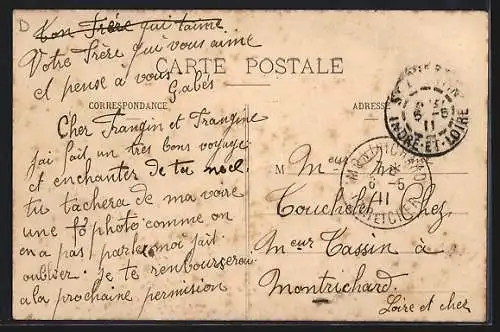 D
Ton Frère qui t'aime
Votre Frère qui vous aime
et pense à vous
Gabés
CARTE POSTALE
CORRESPONDANCE
ADRESSE
Cher Frangin et Frangine
j'ai fait un très bons voyage
et enchanter de tu
tu tachera de ma voire
une photo comme on
en a pas parle moi fait
oublier. je te rembourserai
a la prochaine permission
INDRE-ET-LOIRE
11
MONTRICHARD
6-5
11
M eur
Touchelet Chez
Meur Tassin à
Montrichard.
Loire et cher